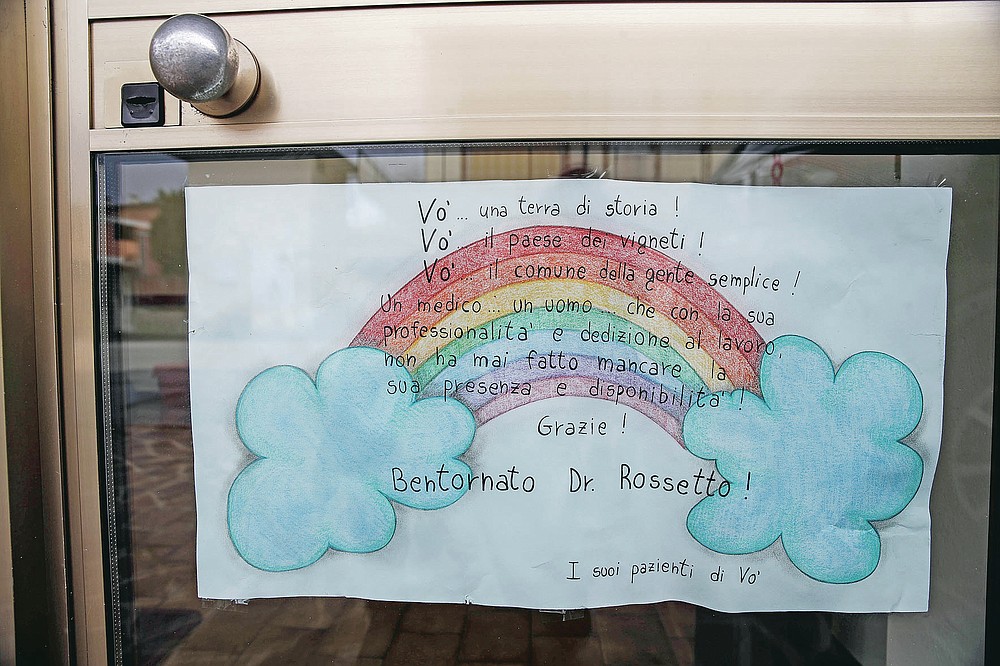 Vo'... una terra di storia !
Vo'... il paese dei vigneti !
Vo'... il comune dalla gente semplice !
Un medico... un uomo.... che con la sua
professionalita' e dedizione al lavoro,
non ha mai fatto mancare la
sua presenza e disponibilita' !
Grazie !
Bentornato Dr. Rossetto !
I suoi pazienti di Vo'